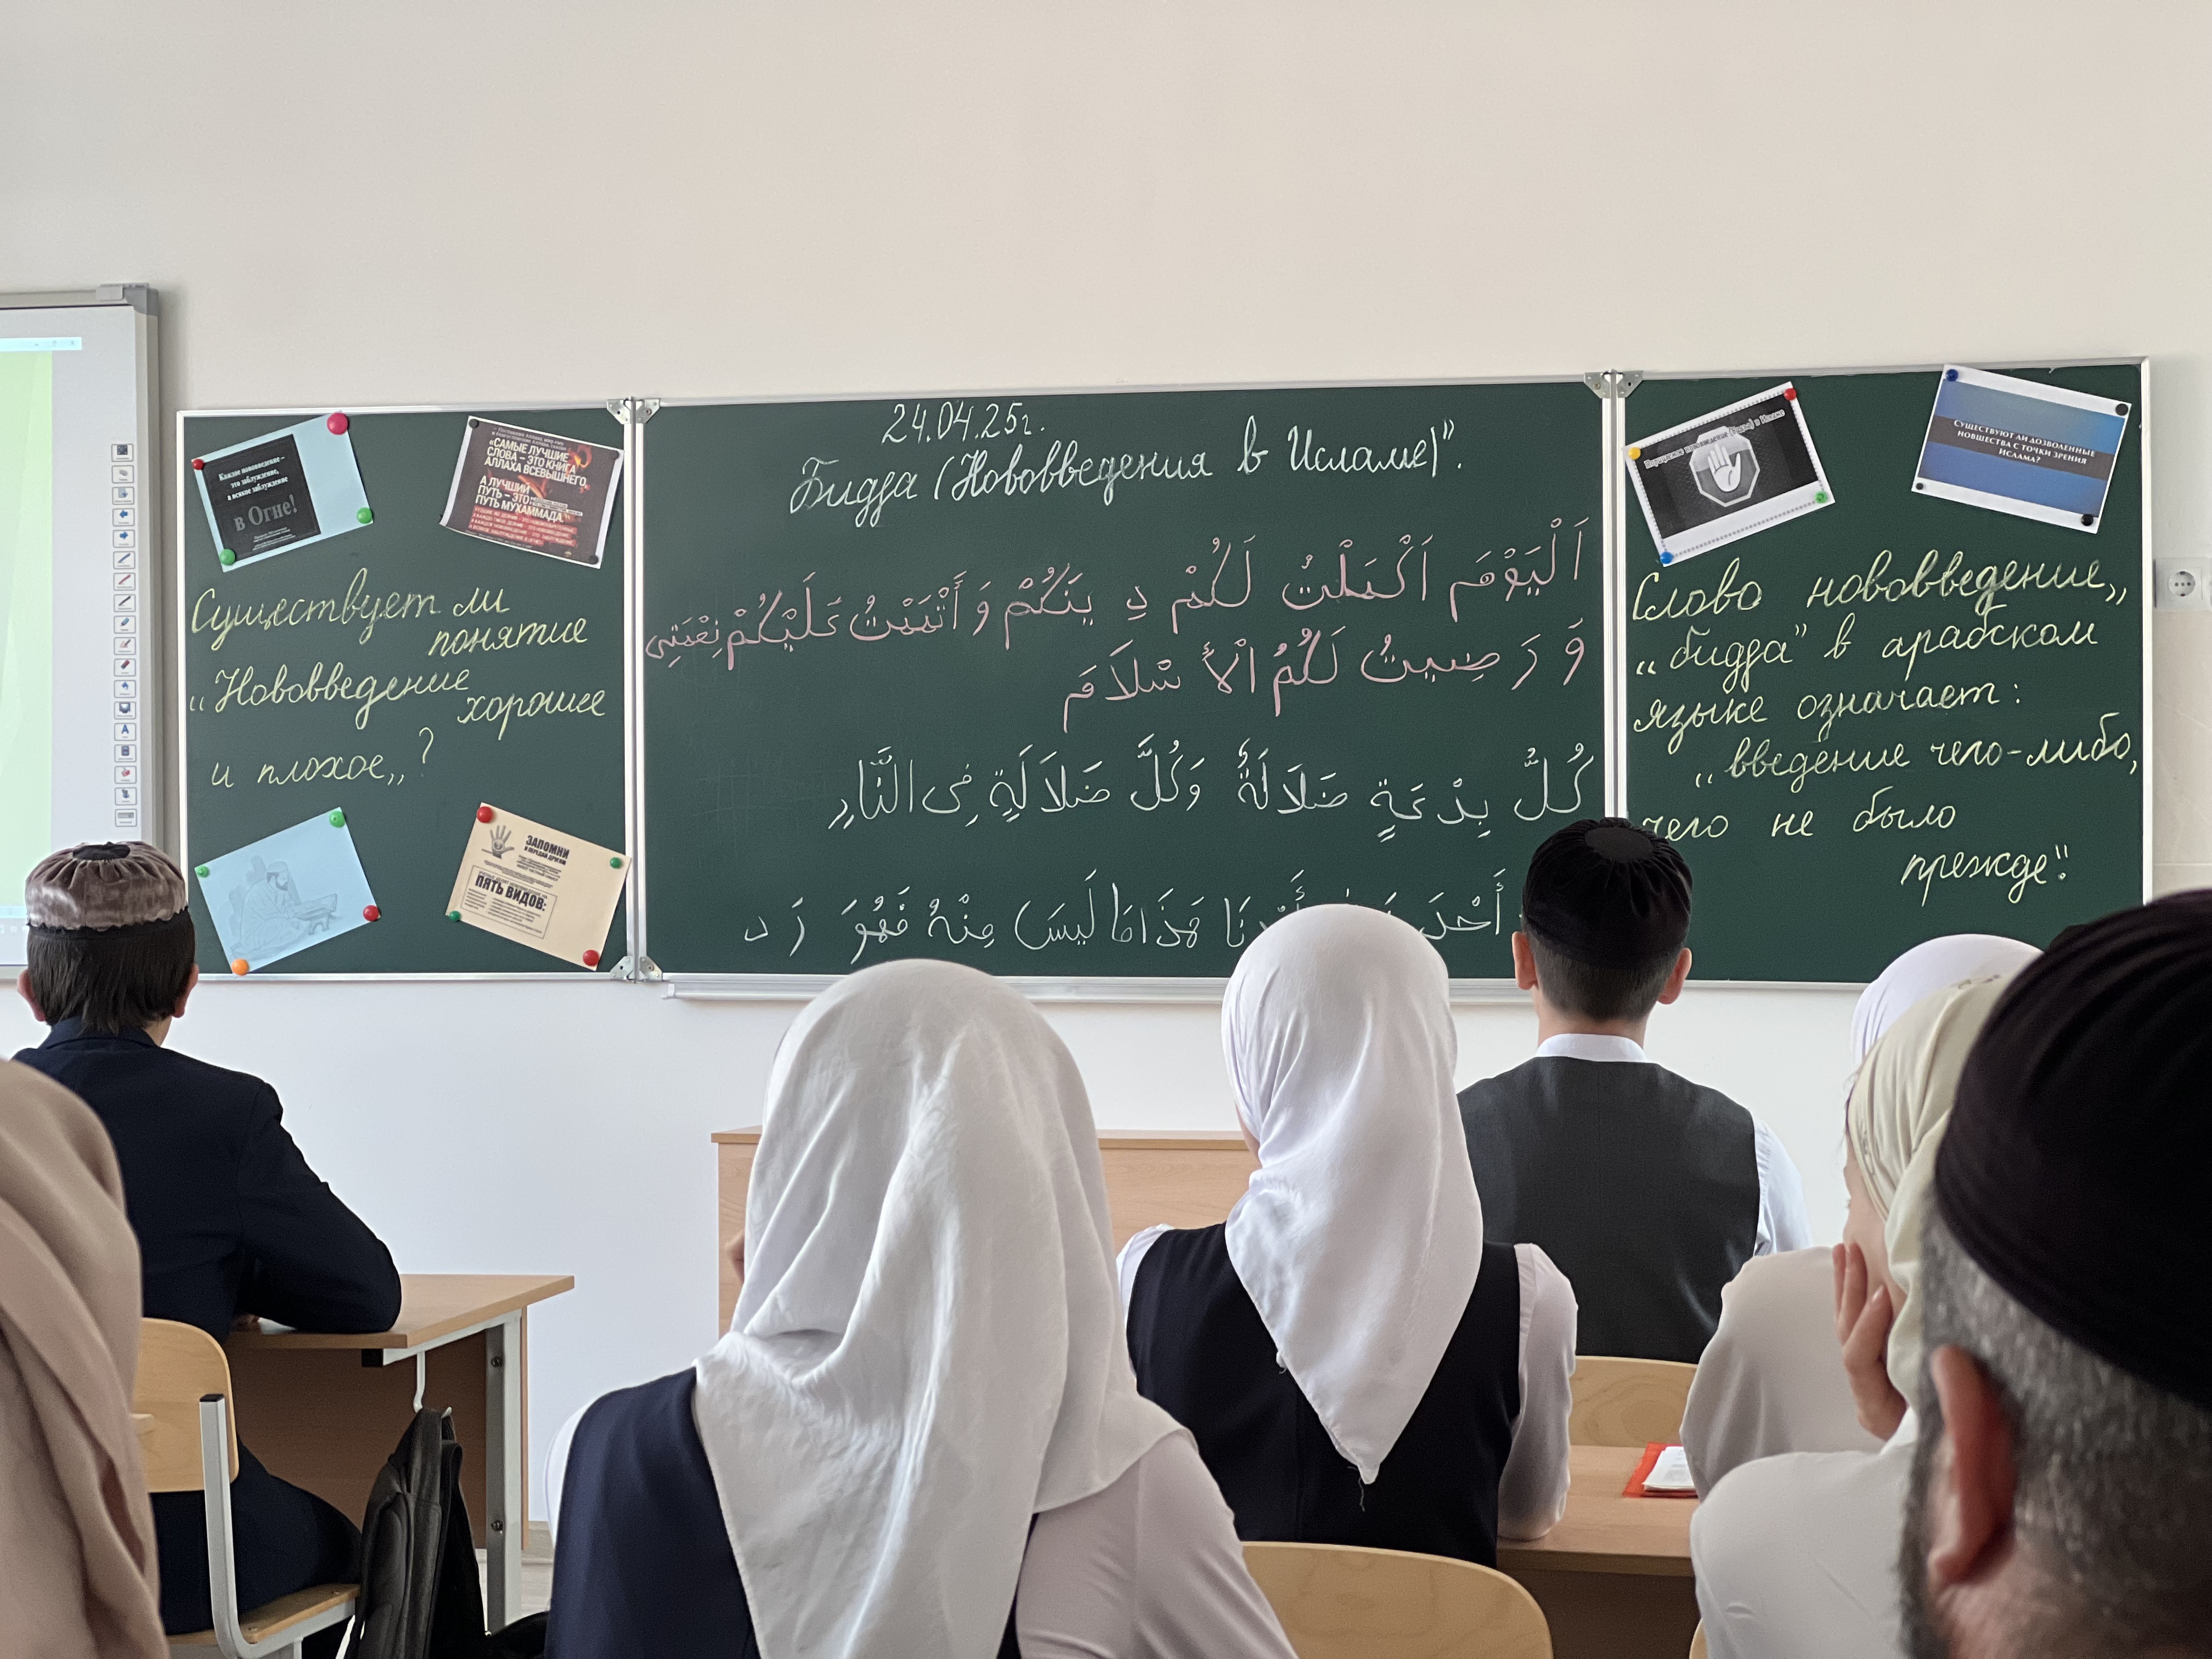 Каждое нововведение –
это заблуждение,
а всякое заблуждение
в Огне!
«САМЫЕ ЛУЧШИЕ
СЛОВА – ЭТО КНИГА
АЛЛАХА ВСЕВЫШНЕГО,
А ЛУЧШИЙ
ПУТЬ – ЭТО
ПУТЬ МУХАММАДА
Существует ли
понятие
„Нововведение
хорошее
и плохое„?
ЗАПОМНИ
И ПЕРЕДАЙ ДРУГИМ
ПЯТЬ ВИДОВ:
24.04.25г.
Бидда (Нововведения в Исламе)".
اَلْيَوْمَ اَكْمَلْتُ لَكُمْ دِ ينَكُمْ وَ أَتْمَمْتُ عَلَيْكُمْ نِعْمَتِى
وَ رَ ضِيتُ لَكُمُ الْأ سْلَامَ
كُلُّ بِدْعَةٍ ضَلَالَةٌ وَكُلَّ ضَلَالَةٍ فِى النَّارِ
هَذَا مَا لَيْسَ مِنْهُ فَهُوَ رَ د
в Исламе
СУЩЕСТВУЮТ ЛИ ДОЗВОЛЕННЫЕ
НОВШЕСТВА С ТОЧКИ ЗРЕНИЯ
ИСЛАМА?
Слово нововведение„
„бидда" в арабском
языке означает:
„введение чего-либо,
чего не было
прежде".